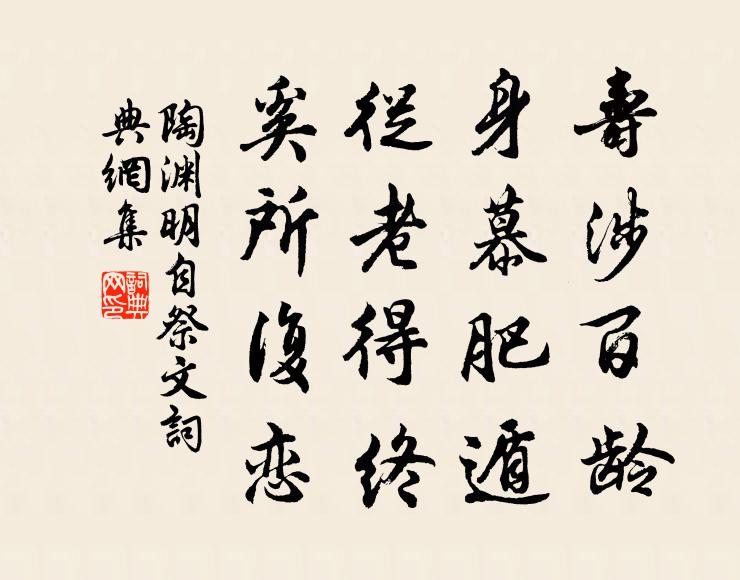 壽涉百龄
身慕肥遁
從老得终
奚所復恋
陶渊明自祭文詞
典網集
詞典网印